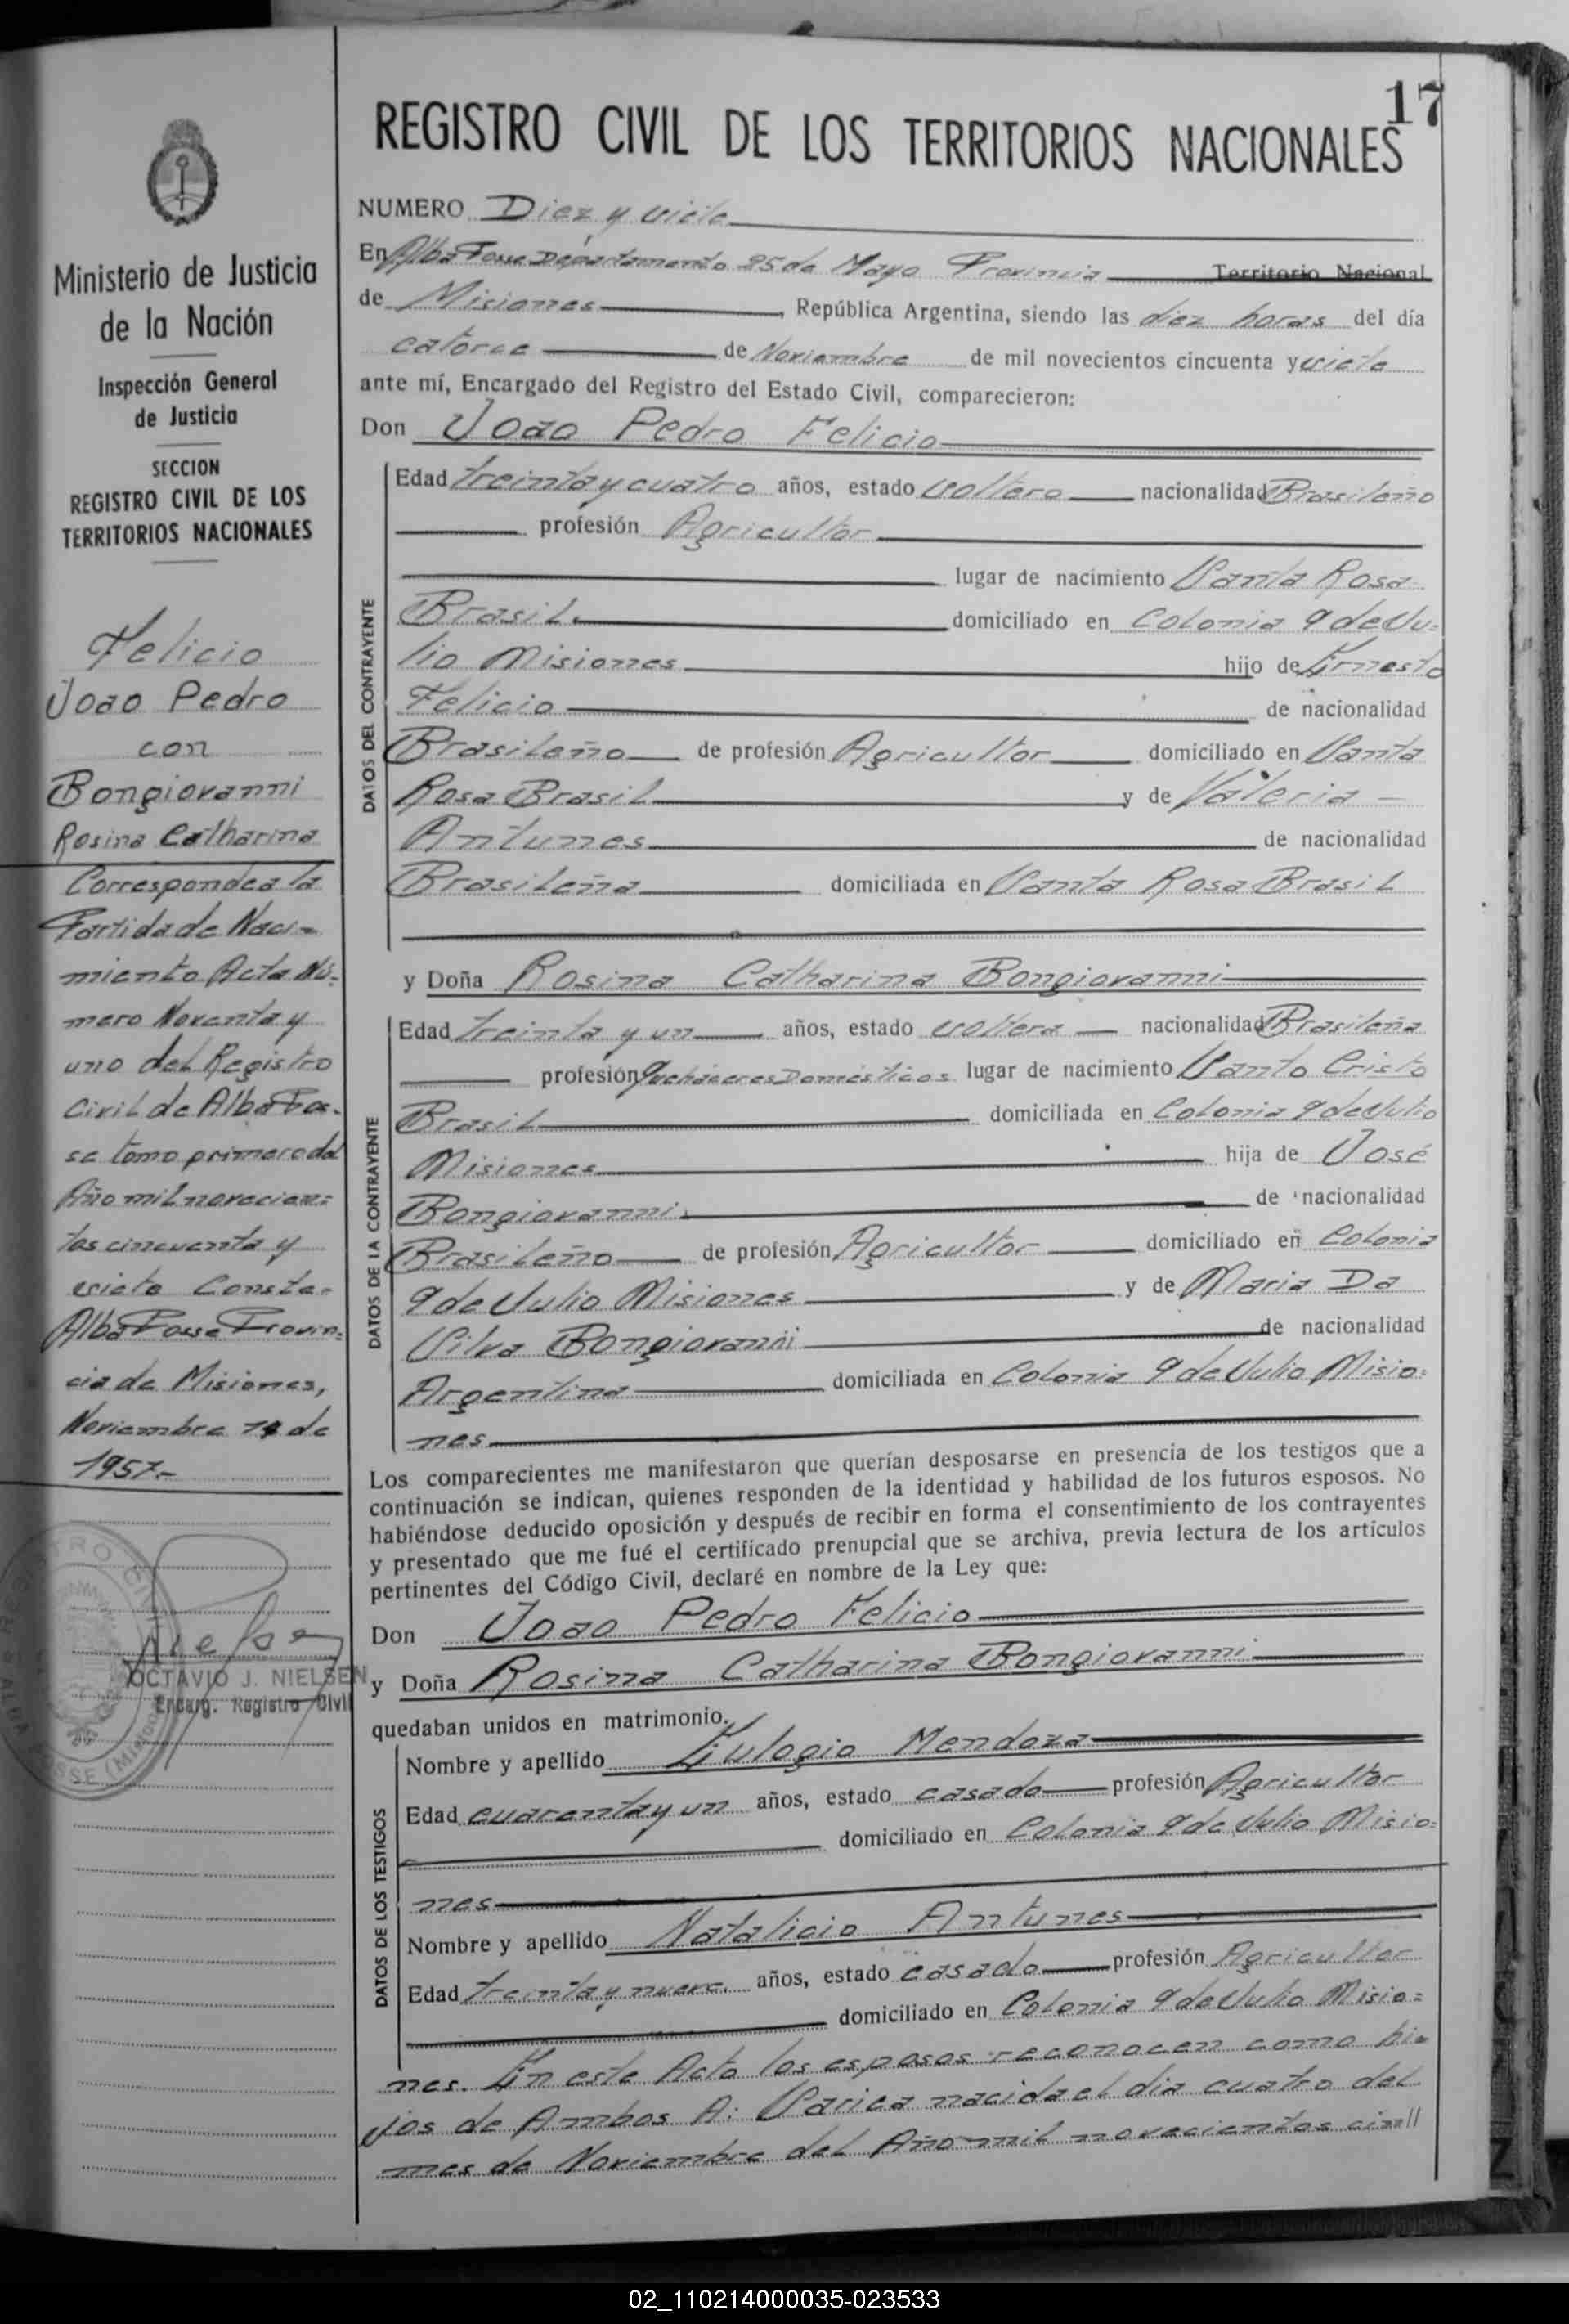 17
REGISTRO CIVIL DE LOS TERRITORIOS NACIONALES
Ministerio de Justicia
de la Nación
Inspección General
de Justicia
SECCION
REGISTRO CIVIL DE LOS
TERRITORIOS NACIONALES
Felicio
Joao Pedro
con
Bongiovanni
Rosina Catharina
Corresponde a la
Partida de Naci-
miento Acta Nú-
mero Noventa y
uno del Registro
Civil de Alba Pos-
se tomo primero del
Año mil novecien-
tos cincuenta y
siete Conste-
Alba Posse Provin-
cia de Misiones,
Noviembre 14 de
1957.-
OCTAVIO J. NIELSEN
Encarg. Registro Civil
NUMERO Diez y siete
En Alba Posse Departamento 25 de Mayo Provincia Territorio Nacional
de Misiones, República Argentina, siendo las diez horas del día
catorce de Noviembre de mil novecientos cincuenta y siete
ante mí, Encargado del Registro del Estado Civil, comparecieron:
Don Joao Pedro Felicio
DATOS DEL CONTRAYENTE
Edad treinta y cuatro años, estado soltero nacionalidad Brasileño
profesión Agricultor
lugar de nacimiento Santa Rosa
Brasil. domiciliado en Colonia 9 de Ju-
lio Misiones hijo de Ernesto
Felicio de nacionalidad
Brasileño de profesión Agricultor domiciliado en Santa
Rosa Brasil y de Valeria
Antunes de nacionalidad
Brasileña domiciliada en Santa Rosa Brasil
y Doña Rosina Catharina Bongiovanni
DATOS DE LA CONTRAYENTE
Edad treinta y un años, estado soltera nacionalidad Brasileña
profesión Quehaceres Domésticos lugar de nacimiento Santo Cristo
Brasil domiciliada en Colonia 9 de Julio
Misiones hija de José
Bongiovanni de nacionalidad
Brasileño de profesión Agricultor domiciliado en Colonia
9 de Julio Misiones y de Maria Da
Silva Bongiovanni de nacionalidad
Argentina domiciliada en Colonia 9 de Julio Misio-
nes
Los comparecientes me manifestaron que querían desposarse en presencia de los testigos que a
continuación se indican, quienes responden de la identidad y habilidad de los futuros esposos. No
habiéndose deducido oposición y después de recibir en forma el consentimiento de los contrayentes
y presentado que me fué el certificado prenupcial que se archiva, previa lectura de los artículos
pertinentes del Código Civil, declaré en nombre de la Ley que:
Don Joao Pedro Felicio
y Doña Rosina Catharina Bongiovanni
quedaban unidos en matrimonio.
DATOS DE LOS TESTIGOS
Nombre y apellido Eulogio Mendoza
Edad cuarenta y un años, estado casado profesión Agricultor
domiciliado en Colonia 9 de Julio Misio-
nes
Nombre y apellido Natalicio Antunes
Edad treinta y nueve. años, estado casado profesión Agricultor
domiciliado en Colonia 9 de Julio Misio-
nes. En este Acto los esposos reconocen como hi-
jos de Ambos A: nacida el dia cuatro del
mes de Noviembre del Año mil novecientos cin//
02_110214000035-023533